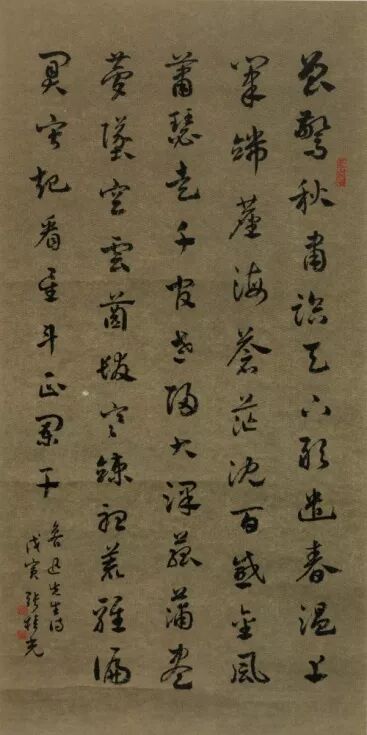 曾驚秋肅臨天下敢遣春溫上
筆端塵海蒼茫沈百感金風
蕭瑟走千官老歸大澤菰蒲盡
夢墜空雲齒髮寒竦聽荒雞偏
闃寂起看星斗正闌干
魯迅先生詩
戊寅張桂光